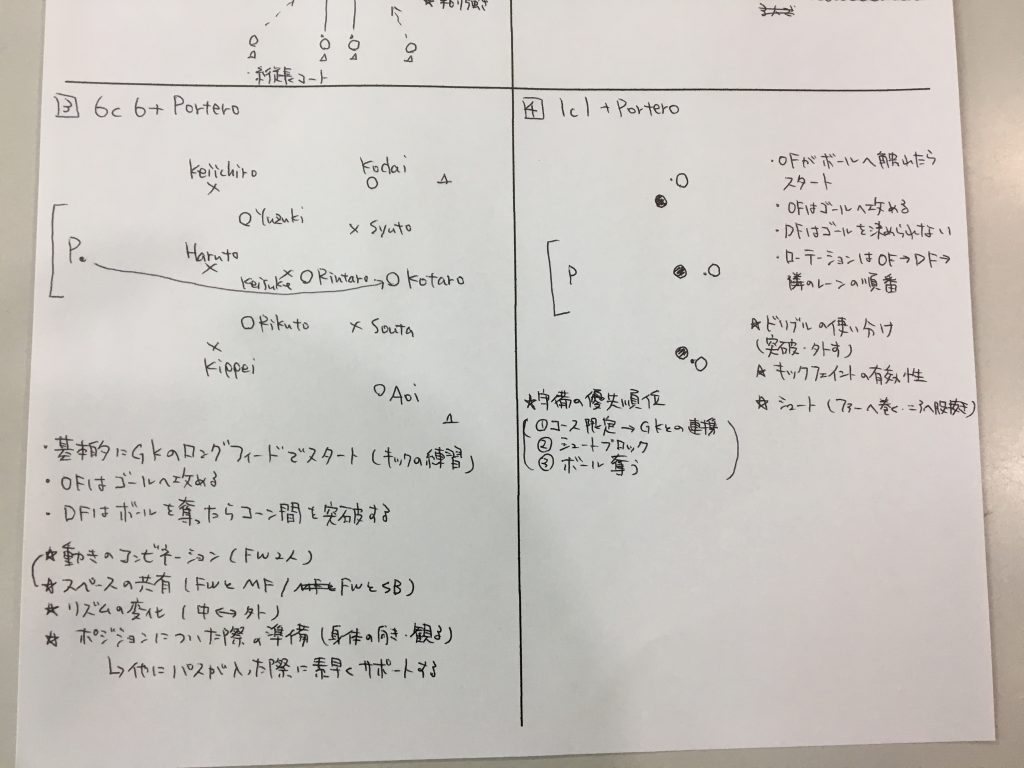 ・新延長コート
③ 6c6+Portero
Keiichiro
Kodai
Yuzuki
Syuto
P
Haruto
Keisuke
Rintaro
Kotaro
Rikuto
Souta
Kippei
Aoi
・基本的にGKのロングフィードでスタート(キックの練習)
・OFはゴールへ攻める
・DFはボールを奪ったらコーン間を突破する
☆動きのコンビネーション(FW2人)
☆スペースの共有(FWとMF/FWとSB)
☆リズムの変化(中↔外)
☆ポジションについた際の準備(身体の向き・観る)
↳他にパスが入った際に素早くサポートする
④ 1c1+Portero
P
・OFがボールへ触れたら
スタート
・OFはゴールへ攻める
・DFはゴールを決められない
・ローテーションはOF→DF→
隣のレーンの順番
☆ドリブルの使い分け
(突破・外す)
☆キックフェイントの有効性
☆シュート(ファーへ巻く・ニアへ股抜き)
☆守備の優先順位
①コース限定→GKとの連携
②シュートブロック
③ボール奪う